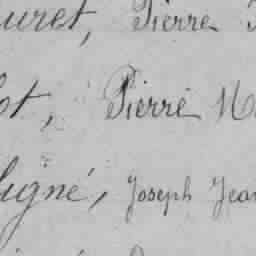 uret, Pierre
ot, Pierre N
igné, Joseph Jean